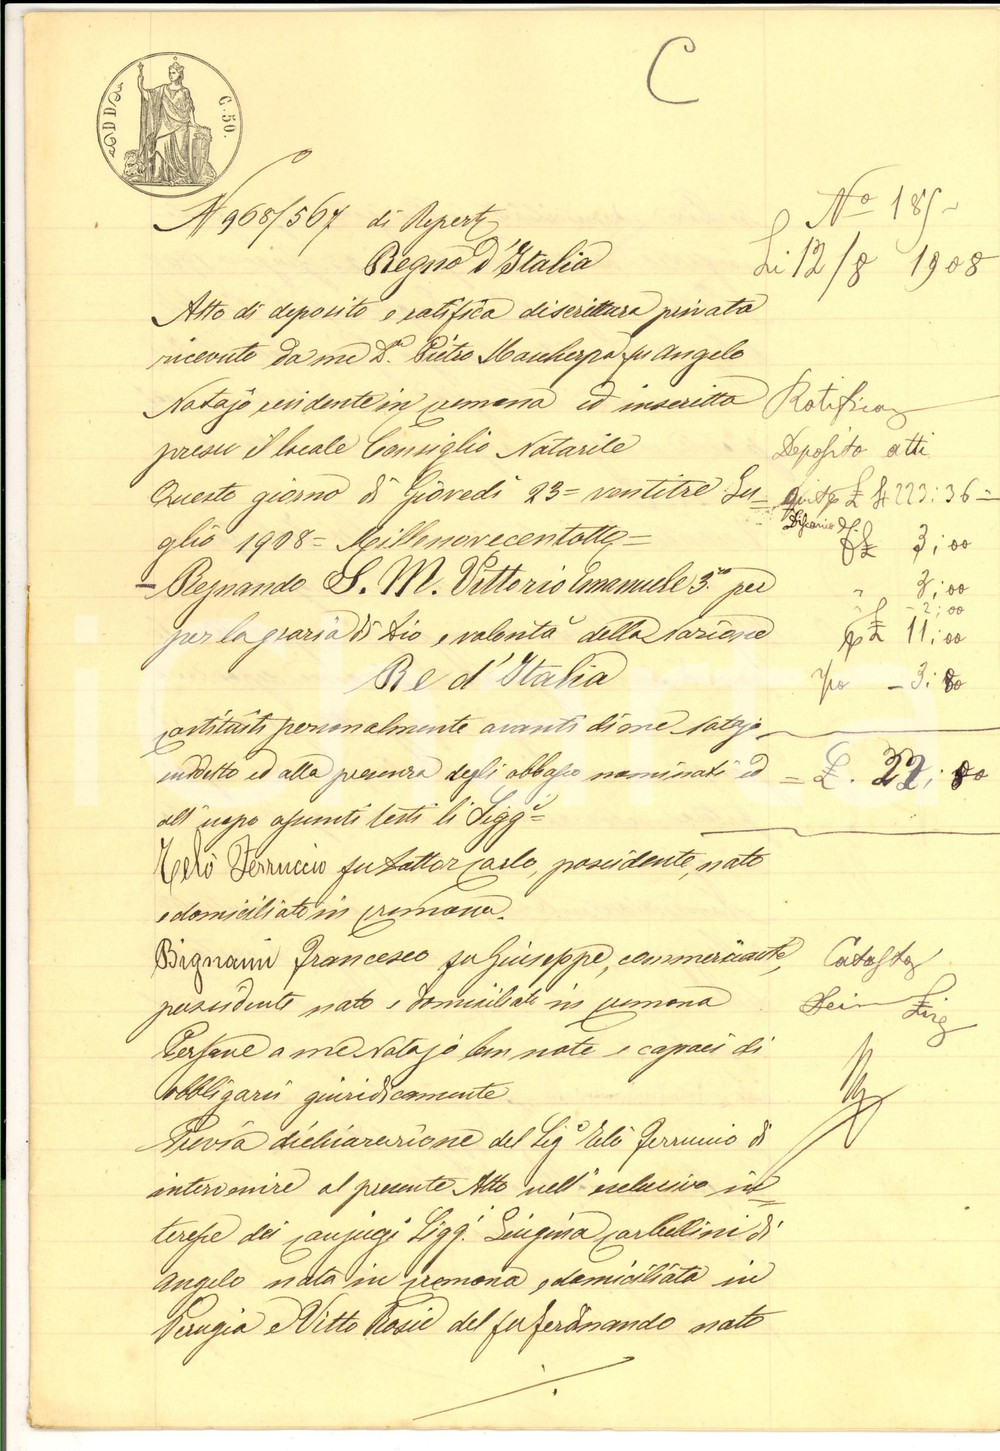 C
C. 50.
N 968/567 di Repert
Regno d'Italia
Atto di deposito e ratifica di scrittura privata
ricevuto da me Dr. Pietro fu Angelo
Notajo residente in Cremona ed inscritto
presso il locale Consiglio Notarile
Questo giorno di Giovedì 23= ventitre Lu=
glio 1908= Millenovecentotto=
Regnando S. M. Vittorio Emanuele 3.° per
per la grazia di Dio e volontà della Nazione
Re d'Italia
costituiti personalmente avanti di me Notajo
suddetto ed alla presenza degli abbasso nominati ed
all'uopo assunti testi li Sigg.i=
Telò Ferruccio fu Dottor Carlo, possidente, nato
e domiciliato in Cremona.
Bignami Francesco fu Giuseppe, commerciante,
possidente nato e domiciliato in Cremona
Persone a me Notajo ben note e capaci di
obbligarsi giuridicamente
Previa dichiarazione del Sig.r Telò Ferruccio di
intervenire al presente Atto nell'esclusivo in=
teresse dei conjugi Sigg.i Luigina Corbellini di
Angelo nata in Cremona e domiciliata in
Perugia e Vitto Rosie del fu Ferdinando nato
No 185
Li 12/8 1908
Ratifica
Deposito atti
£ 4223:36=
£ 3;00
" 3;00
" - 2;00
£ 11;00
- 3;80
= £. 22;80
Catasto